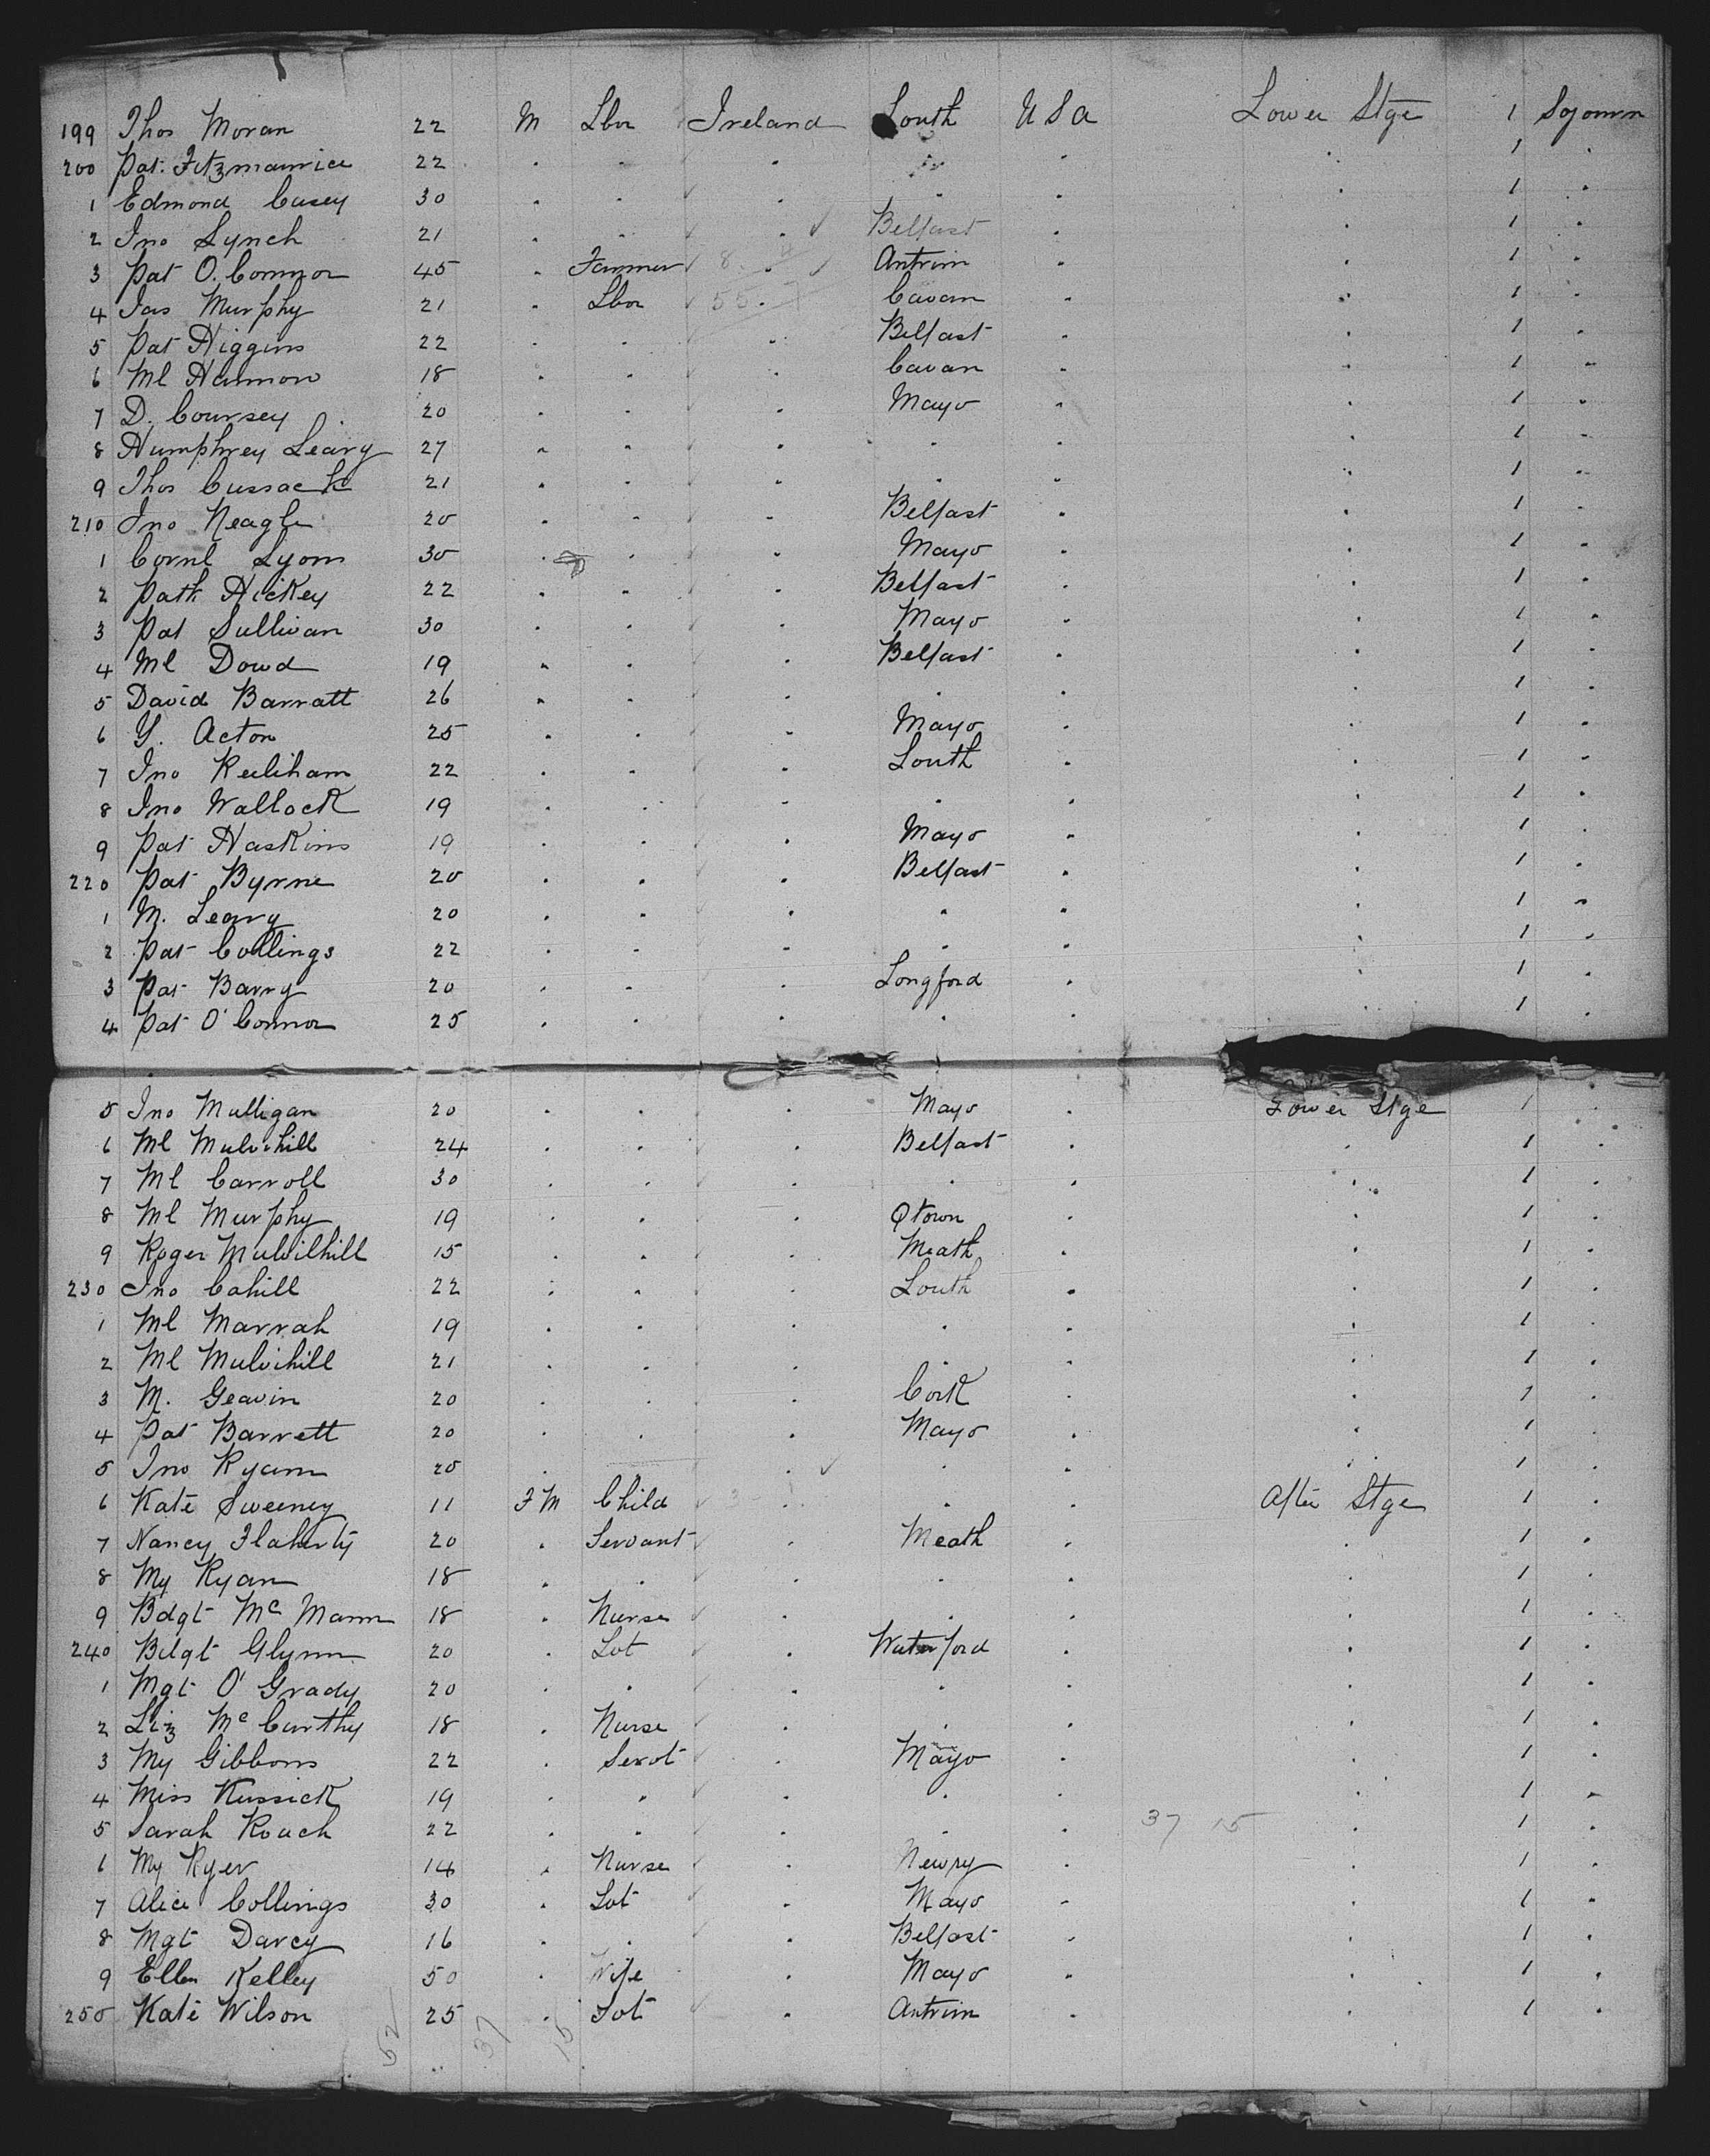 199 Thos Moran 22 M Lbr Ireland Louth U S A Lower Stge 1 Sojourn
200 Pat. Fitzmaurice 22 " " " " " " 1 "
1 Edmond Casey 30 " " " " " " 1 "
2 Jno Lynch 21 " " " Belfast " " 1 "
3 Pat O'Connor 45 " Farmer " Antrim " " 1 "
4 Jas Murphy 21 " Lbr " Cavan " " 1 "
5 Pat Higgins 22 " " " Belfast " " 1 "
6 Ml Hannon 18 " " " Cavan " " 1 "
7 D. Coursey 20 " " " Mayo " " 1 "
8 Humphrey Leary 27 " " " " " " 1 "
9 Thos Cussack 21 " " " " " " 1 "
210 Jno Neagle 20 " " " Belfast " " 1 "
1 Cornl Lyons 30 " " " Mayo " " 1 "
2 Patk Hickey 22 " " " Belfast " " 1 "
3 Pat Sullivan 30 " " " Mayo " " 1 "
4 Ml Dowd 19 " " " Belfast " " 1 "
5 David Barratt 26 " " " " " " 1 "
6 Y. Acton 25 " " " Mayo " " 1 "
7 Jno Keeliham 22 " " " Louth " " 1 "
8 Jno Wallack 19 " " " " " " 1 "
9 Pat Haskins 19 " " " Mayo " " 1 "
220 Pat Byrne 20 " " " Belfast " " 1 "
1 M. Leary 20 " " " " " " 1 "
2 Pat Collings 22 " " " " " " 1 "
3 Pat Barry 20 " " " Longford " " 1 "
4 Pat O'Connor 25 " " " " " " 1 "
5 Jno Mulligan 20 " " " Mayo " Lower Stge 1 "
6 Ml Mulvihill 24 " " " Belfast " " 1 "
7 Ml Carroll 30 " " " " " " 1 "
8 Ml Murphy 19 " " " Qtown " " 1 "
9 Roger Mulvilhill 15 " " " Meath " " 1 "
230 Jno Cahill 22 " " " Louth " " 1 "
1 Ml Marrah 19 " " " " " " 1 "
2 Ml Mulvihill 21 " " " " " " 1 "
3 M. Geavin 20 " " " Cork " " 1 "
4 Pat Barrett 20 " " " Mayo " " 1 "
5 Jno Ryan 20 " " " " " " 1 "
6 Kate Sweeney 11 F M Child " " " After Stge 1 "
7 Nancy Flaherty 20 " Servant " Meath " " 1 "
8 My Ryan 18 " " " " " " 1 "
9 Bdgt Mc Mann 18 " Nurse " " " " 1 "
240 Bdgt Glynn 20 " Svt " Waterford " " 1 "
1 Mgt O'Grady 20 " " " " " " 1 "
2 Liz Mc Carthy 18 " Nurse " " " " 1 "
3 My Gibbons 22 " Servt " Mayo " " 1 "
4 Miss Kussick 19 " " " " " " 1 "
5 Sarah Roach 22 " " " " " 37 15 " 1 "
6 My Ryer 14 " Nurse " Newry " " 1 "
7 Alice Collings 30 " Svt " Mayo " " 1 "
8 Mgt Darcy 16 " " " Belfast " " 1 "
9 Ellen Kelley 50 " Wife " Mayo " " 1 "
250 Kate Wilson 25 " Svt " Antrim " " 1 "
52 37 15